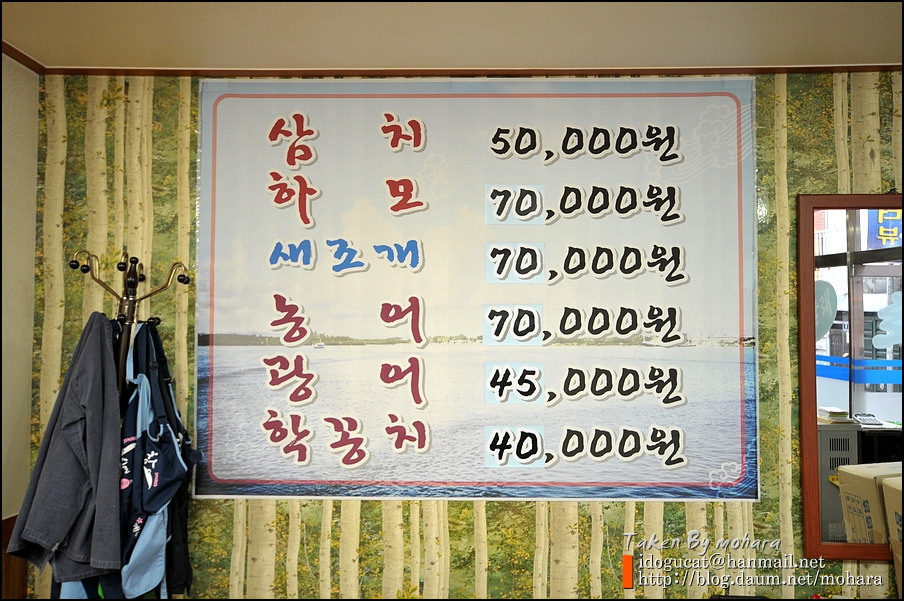 삼치 50,000원
하모 70,000원
새조개 70,000원
농어 70,000원
광어 45,000원
학꽁치 40,000원
Taken By mohara
idogucat@hanmail.net
http://blog.daum.net/mohara